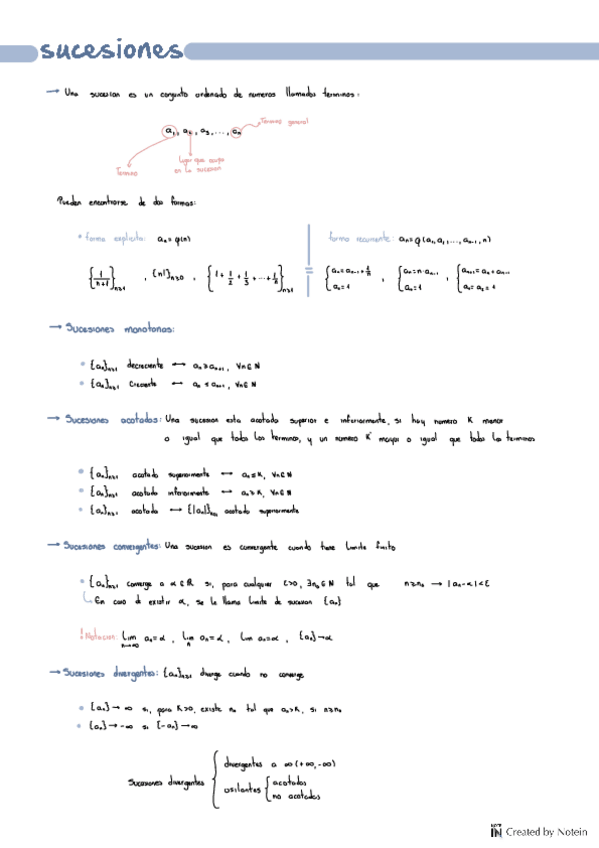 sucesiones
→ Una sucesion es un conjunto ordenado de numeros llamados terminos:
a₁, a₂, a₃, ..., aₙ
Termino general
Termino
lugar que ocupa
en la sucesion
Pueden encontrarse de dos formas:
• forma explicita: aₙ = φ(n)
forma recurrente: aₙ = φ(a₁, a₁, ..., aₙ₋₁, n)
{1/(n+1)}ₙ≥₁ , {n!}ₙ≥₀ , {1 + 1/2 + 1/3 + ... + 1/n}ₙ≥₁
=
{aₙ = aₙ₋₁ + 1/n , {aₙ = n·aₙ₋₁ , {aₙ₊₁ = aₙ + aₙ₋₁
a₁ = 1 a₁ = 1 a₁ = a₂ = 1
→ Sucesiones monotonas:
• {aₙ}ₙ≥₁ decreciente ↔ aₙ ≥ aₙ₊₁, ∀n∈N
• {aₙ}ₙ≥₁ Creciente ↔ aₙ ≤ aₙ₊₁, ∀n∈N
→ Sucesiones acotadas: Una sucesion esta acotada superior e inferiormente, si hay numero K menor
o igual que todos los terminos, y un numero K' mayor o igual que todos los terminos
• {aₙ}ₙ≥₁ acotada superiormente ↔ aₙ ≤ K, ∀n∈N
• {aₙ}ₙ≥₁ acotada inferiormente ↔ aₙ ≥ K, ∀n∈N
• {aₙ}ₙ≥₁ acotada ↔ {|aₙ|}ₙ≥₁ acotada superiormente
→ Sucesiones convergentes: Una sucesion es convergente cuando tiene limite finito
• {aₙ}ₙ≥₁ converge a α∈R si, para cualquier ε>0, ∃n₀∈N tal que n≥n₀ → |aₙ-α|<ε
En caso d existir α, se le llama limite de sucesion {aₙ}
! Notacion: lim aₙ = α , lim aₙ = α , lim aₙ = α , {aₙ}→α
n→∞ n
→ Sucesiones divergentes: {aₙ}ₙ≥₁ diverge cuando no converge
• {aₙ}→ ∞ si, para K>0, existe n₀ tal que aₙ>K, si n≥n₀
• {aₙ}→ -∞ si {-aₙ}→∞
Sucesiones divergentes
divergentes a ∞ (+∞, -∞)
oscilantes
acotadas
no acotadas
NOTE IN Created by Notein